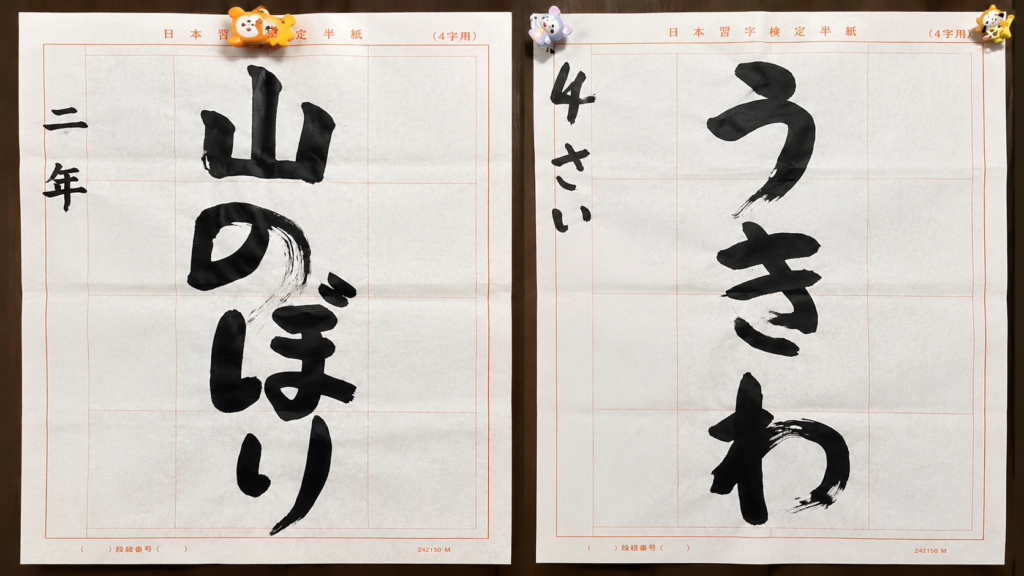 日本習字検定半紙
(4字用)
山のぼり
二年
( )段級番号( )
242150 M
日本習字検定半紙
(4字用)
うきわ
4さい
( )段級番号( )
242150 M